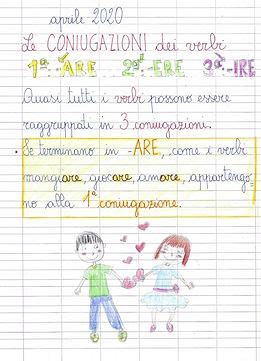 aprile 2020
Le CONIUGAZIONI dei verbi
1ª-ARE 2ª-ERE 3ª-IRE
Quasi tutti i verbi possono essere
raggruppati in 3 coniugazioni.
• Se terminano in -ARE, come i verbi
mangiare, giocare, amare, appartengo=
no alla 1ª coniugazione.